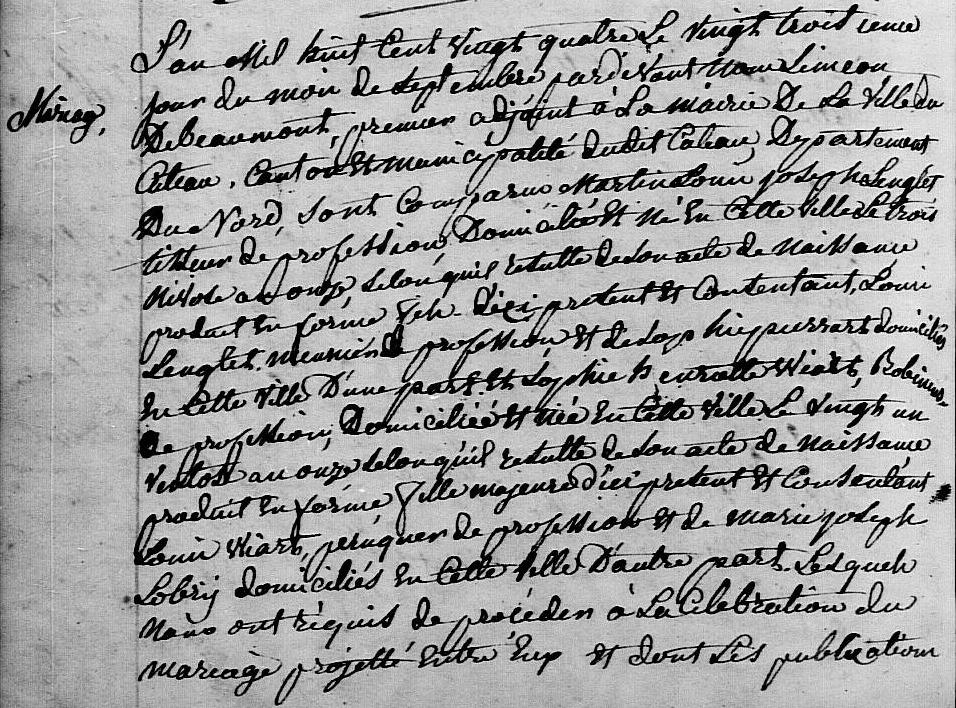 L'an Mil huit Cent Vingt quatre Le Vingt troisieme
jour du mois de septembre pardevant Nous Simeon
Mariag.
Debeaumont, premier adjoint à La mairie De La Ville du
Cateau, Canton Et municipalité dudit Cateau, Departement
Du Nord, sont Comparus Martin Louis joseph Lenglet
tisseur de profession Domicilié Et Né En Cette Ville Le trois
Nivose an onze selon qu'il resulte de son acte de Naissance
produit En forme fils d'ici present Et Consentant, Louis
Lenglet meunier de profession Et de Sophie pierrart domiciliés
En Cette Ville D'une part, Et Sophie henriette Wiart, Bobineuse
De profession, Domiciliée Et Née En Cette Ville Le Vingt un
Ventose an onze selon qu'il resulte de son acte de Naissance
produit En forme fille majeure d'ici present Et Consentant
Louis Wiart, peruquier de profession Et de Marie joseph
Lobry domiciliés En Cette Ville D'autre part. Lesquels
Nous ont réquis de procéder à La Célébration du
mariage projetté Entre Eux Et dont Les publications